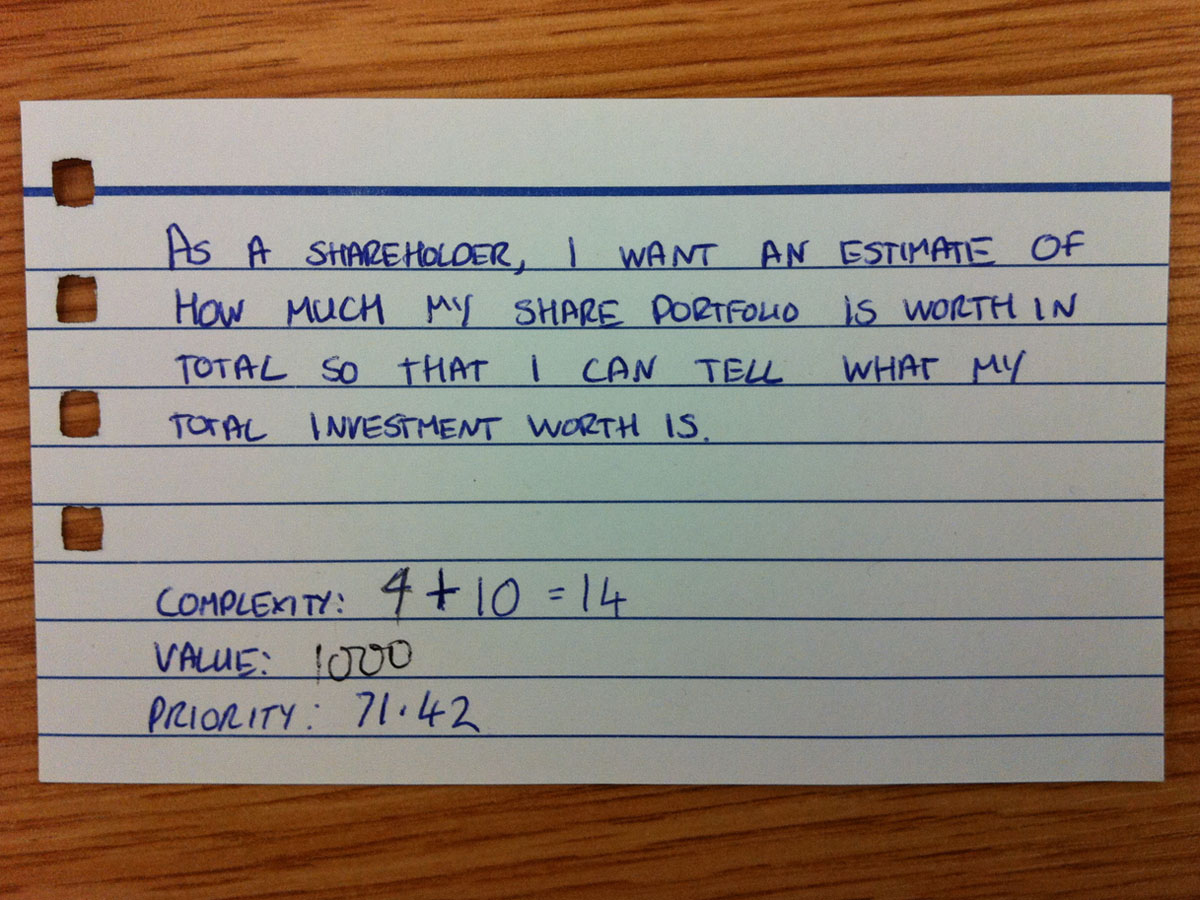 AS A SHAREHOLDER, I WANT AN ESTIMATE OF
HOW MUCH MY SHARE PORTFOLIO IS WORTH IN
TOTAL SO THAT I CAN TELL WHAT MY
TOTAL INVESTMENT WORTH IS.
COMPLEXITY: 4 + 10 = 14
VALUE: 1000
PRIORITY: 71.42